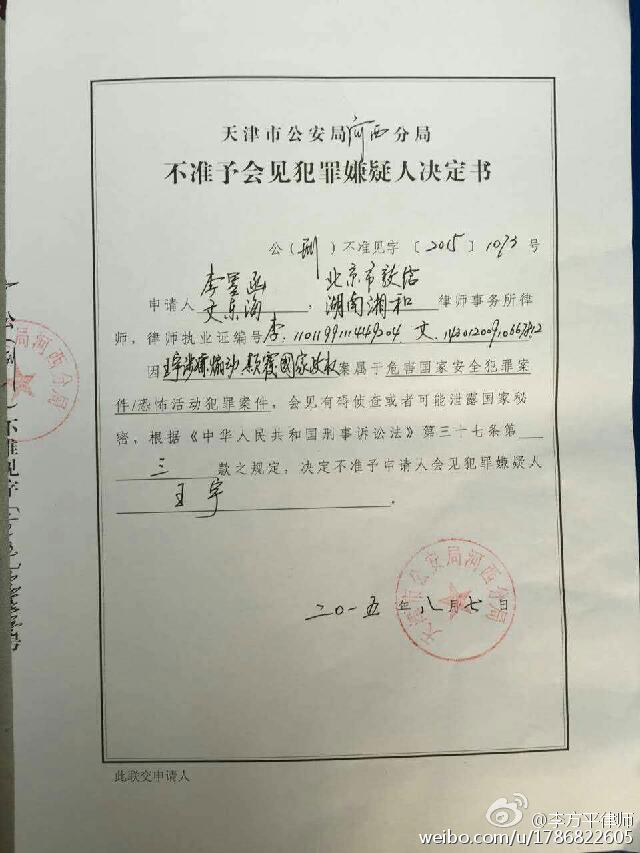 天津市公安局河西分局
不准予会见犯罪嫌疑人决定书
公(刑)不准见字〔2015〕1073号
李昱函 北京市敦信
申请人文东海,湖南湘和律师事务所律
师,律师执业证编号李.1101199111449204 文.
因王宇涉嫌煽动颠覆國家政权案属于危害国家安全犯罪案
件/恐怖活动犯罪案件,会见有碍侦查或者可能泄露国家秘
密,根据《中华人民共和国刑事诉讼法》第三十七条第
三款之规定,决定不准予申请人会见犯罪嫌疑人
王宇。
天津市公安局河西分局
二〇一五年八月七日
此联交申请人
河西分局
不准见字
@李方平律师
weibo.com/u/1786822605